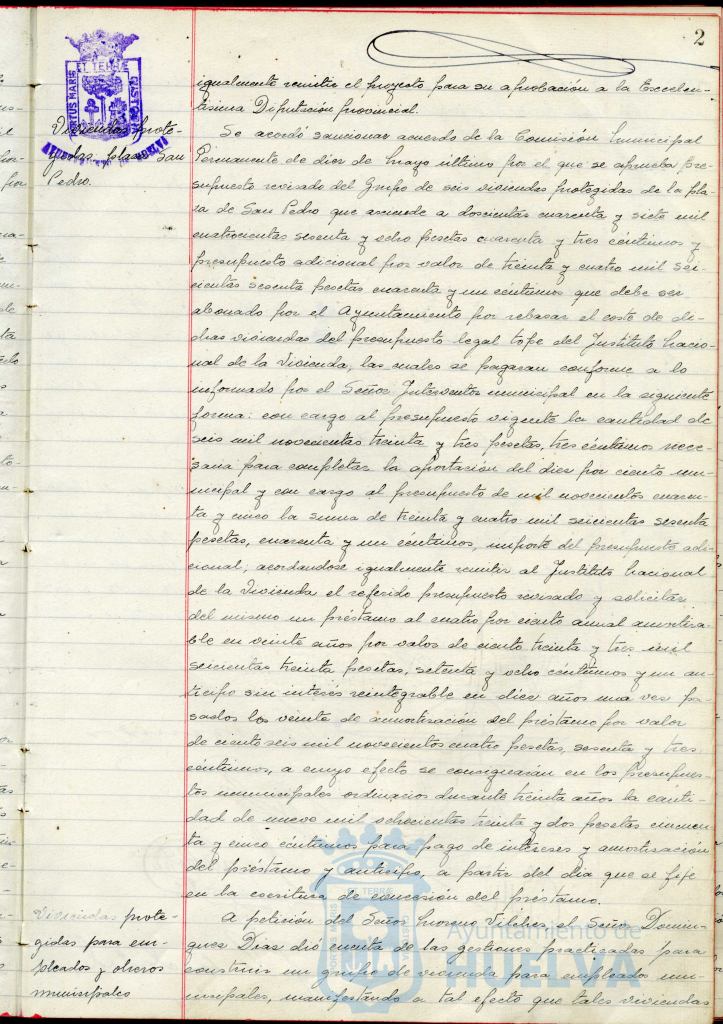 2
igualmente remitir el proyecto para su aprobación a la Excelen-
tísima Diputación provincial.
Viviendas prote-
gidas plaza San
Pedro.
PORTUS MARIS ET TERRE CUSTODIA
AYUNTAMIENTO DE HUELVA
Se acordó sancionar acuerdo de la Comisión municipal
Permanente de diez de mayo último por el que se aprueba pre-
supuesto revisado del Grupo de seis viviendas protegidas de la pla-
za de San Pedro que asciende a doscientas cuarenta y siete mil
cuatrocientas sesenta y ocho pesetas cuarenta y tres céntimos y
presupuesto adicional por valor de treinta y cuatro mil sei-
cientas sesenta pesetas cuarenta y un céntimos que debe ser
abonado por el Ayuntamiento por rebasar el coste de di-
chas viviendas del presupuesto legal tope del Instituto Nacio-
nal de la Vivienda, las cuales se pagaran conforme a lo
informado por el Señor Interventor municipal en la siguiente
forma: con cargo al presupuesto vigente la cantidad de
seis mil novecientas treinta y tres pesetas, tres céntimos nece-
saria para completar la aportación del diez por ciento mu-
nicipal y con cargo al presupuesto de mil novecientos cuaren-
ta y cinco la suma de treinta y cuatro mil seiscientas sesenta
pesetas, cuarenta y un céntimos, importe del presupuesto adi-
cional; acordandose igualmente remitir al Instituto Nacional
de la Vivienda el referido presupuesto revisado y solicitar
del mismo un préstamo al cuatro por ciento anual amortiza-
ble en veinte años por valor de ciento treinta y tres mil
seiscientas treinta pesetas, setenta y ocho céntimos y un an-
ticipo sin interés reintegrable en diez años una vez pa-
sados los veinte de amortización del préstamo por valor
de ciento seis mil novecientos cuatro pesetas, sesenta y tres
céntimos, a cuyo efecto se consignarán en los Presupues-
tos municipales ordinarios durante treinta años la canti-
dad de nueve mil ochocientas treinta y dos pesetas cincuen-
ta y cinco céntimos para pago de intereses y amortización
del préstamo y anticipo, a partir del dia que se fije
en la escritura de concesión del préstamo.
Viviendas prote-
gidas para em-
pleados y obreros
municipales
A petición del Señor Moreno Vilches el Señor Domin-
guez Diaz dió cuenta de las gestiones practicadas para
construir un grupo de vivienda para empleados mu-
nicipales, manifestando a tal efecto que tales viviendas
Ayuntamiento de
HUELVA